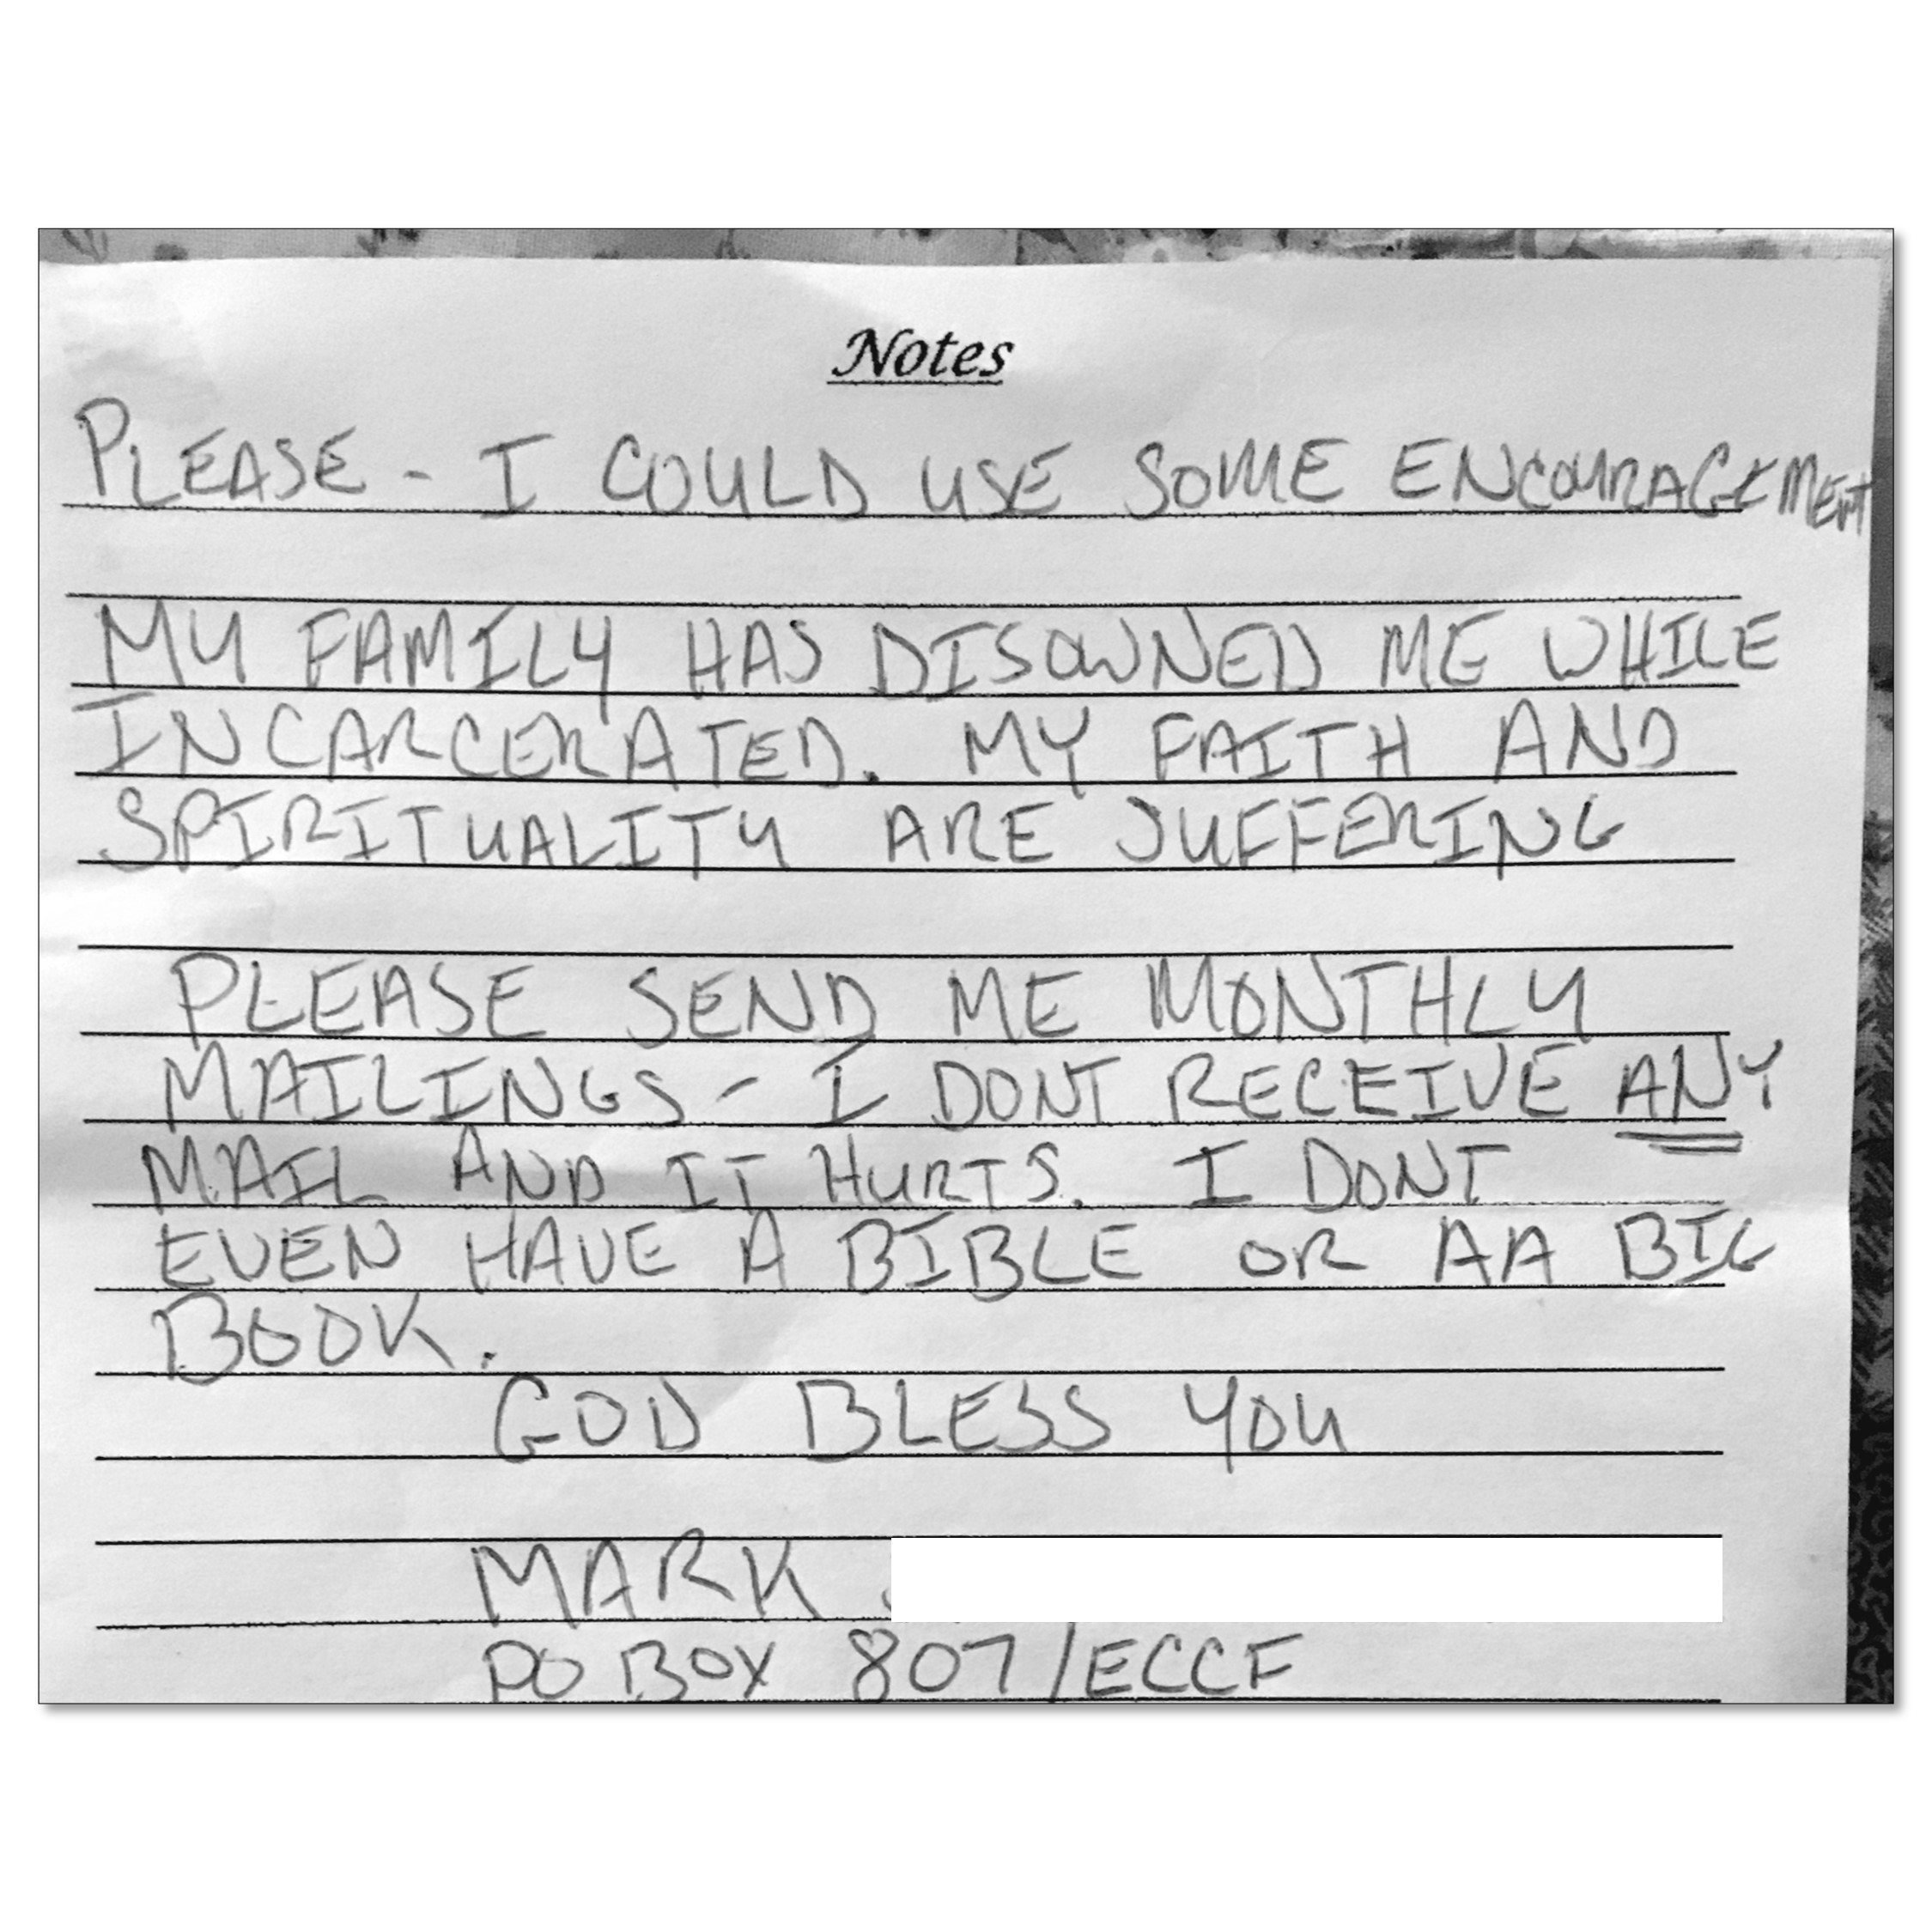 Notes
PLEASE - I COULD USE SOME ENCOURAGEMENT
MY FAMILY HAS DISOWNED ME WHILE
INCARCERATED. MY FAITH AND
SPIRITUALITY ARE SUFFERING
PLEASE SEND ME MONTHLY
MAILINGS - I DONT RECEIVE ANY
MAIL AND IT HURTS. I DONT
EVEN HAVE A BIBLE OR AA BIG
BOOK.
GOD BLESS YOU
MARK
PO BOX 807/ECCF